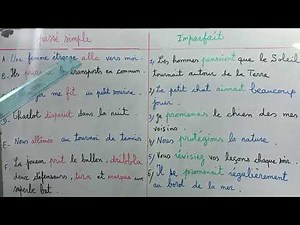 passé simple
A. Une femme étrange alla vers moi.
B. Ils transports en commun.
me fit un petit sourire.
D. Charlot disparut dans la nuit.
E. Nous allâmes au tournoi de tennis
F. Le joueur prit le ballon, dribbla
deux défenseurs, tira et marqua un
superbe but.
Imparfait
1/ Les hommes pensaient que le Soleil
tournait autour de la Terre
2/ Le petit chat aimait beaucoup
jouer.
3/ Je promenais le chien des mes
voisins.
4/ Nous protégions la nature.
5/ Vous révisiez vos leçons chaque
6/ Il se promenait régulièrement
au bord de la mer.